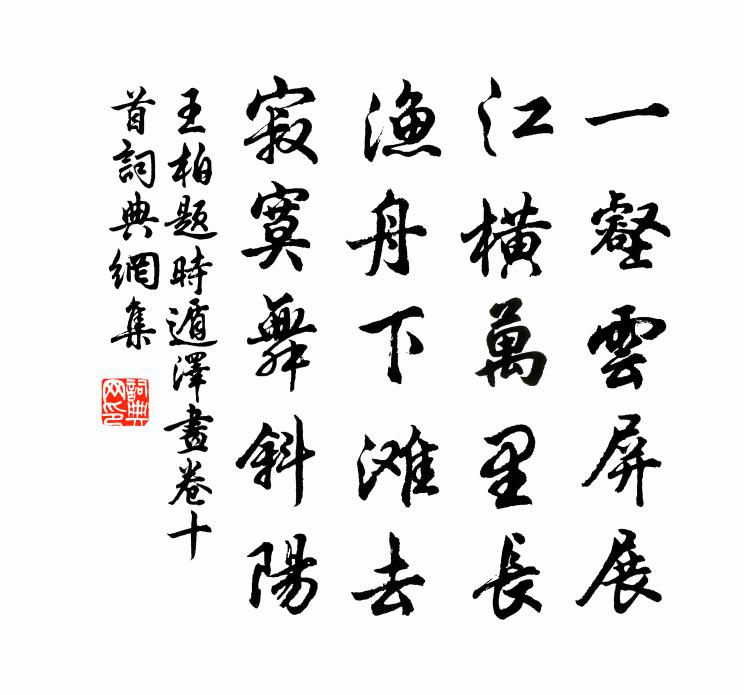 一壑雲屏展
江橫萬里長
漁舟下滩去
寂寞舞斜陽
王柏題時遁澤畫卷十
首詞典網集
詞典网印